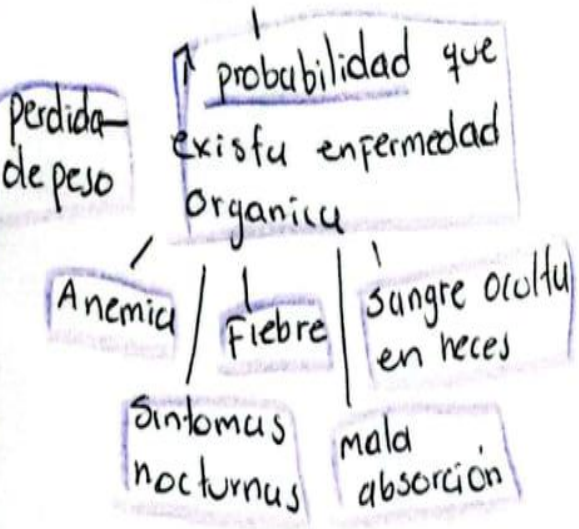 ↑ probabilidad que
existu enfermedad
organicu
perdida
de peso
Anemia
Fiebre
Sangre oculta
en heces
Sintomas
nocturnas
mala
absorción